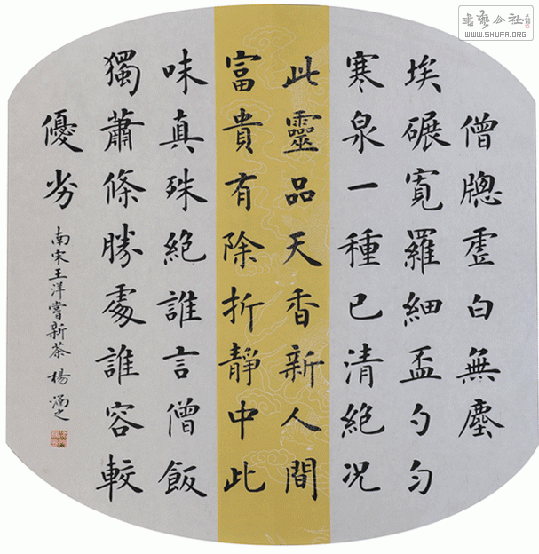 僧牕虛白無塵
埃碾寬羅細盃勺勻
寒泉一種已清絕况
此靈品天香新人間
富貴有除折靜中此
味真殊絕誰言僧飯
獨蕭條勝處誰容較
優劣
南宋王洋嘗新茶 楊
書藝公社
WWW.SHUFA.ORG